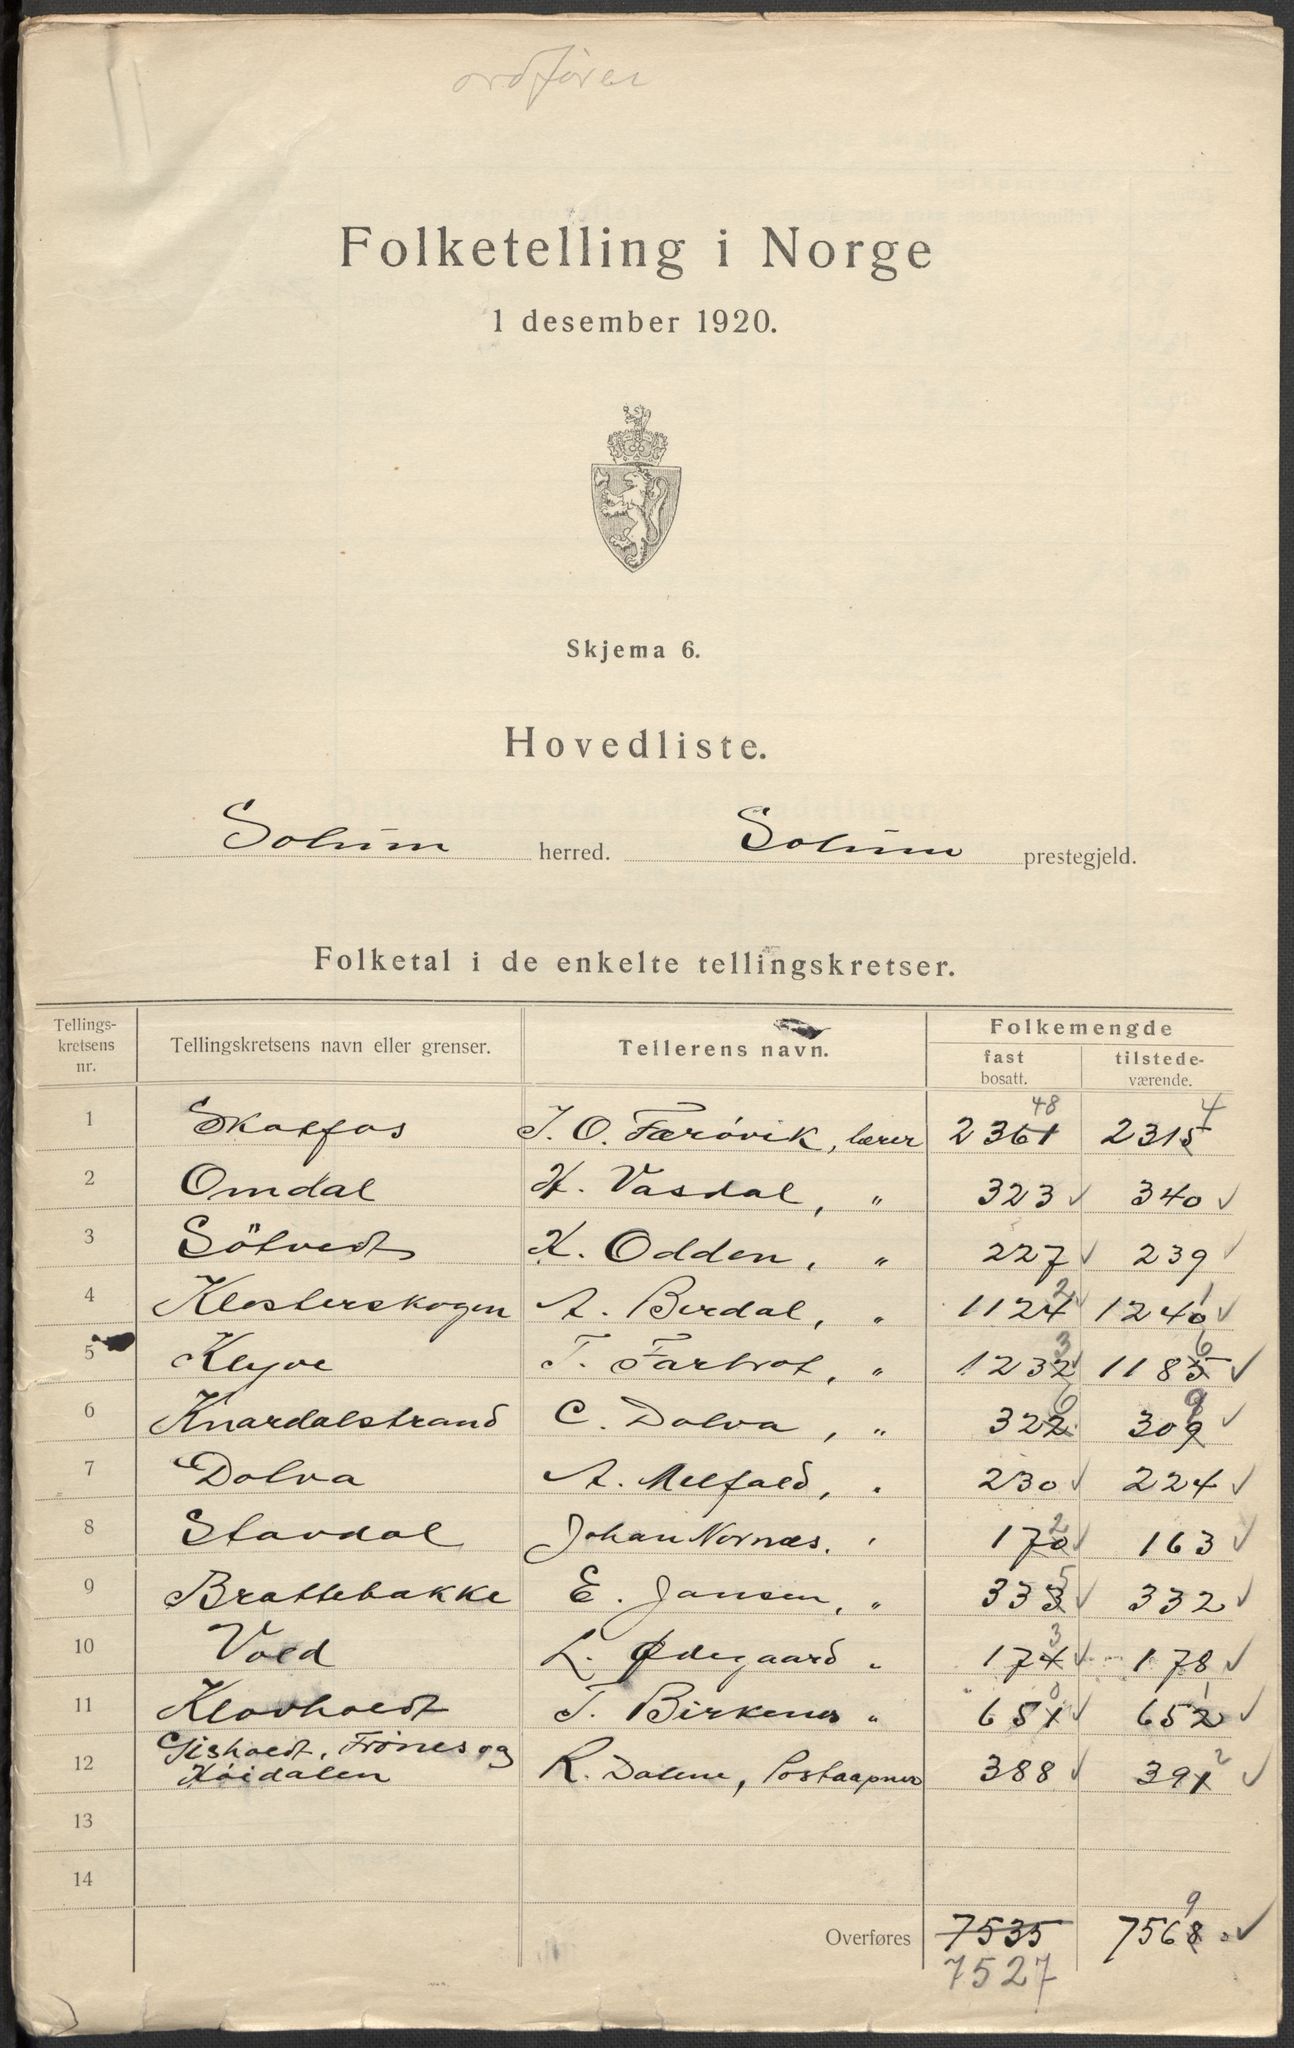 ordfører
Folketelling i Norge
1 desember 1920.
Skjema 6.
Hovedliste.
Solum herred. Solum prestegjeld.
Folketal i de enkelte tellingskretser.
Tellings-kretsens nr. Tellingskretsens navn eller grenser. Tellerens navn. Folkemengde
fast bosatt. tilstede-værende.
1 Skotfos J. O. Færóvik, lærer 2361 48 2315 4
2 Omdal H. Vasdal, " 323 ✓ 340 ✓
3 Sötvedt K. Odden, " 227 ✓ 239 ✓
4 Klosterskogen A. Berdal, " 1124 2 ✓ 1240 1 ✓
5 Klyve T. Fartrot, " 1232 3 ✓ 1185 6 ✓
6 Knardalstrand C. Dolva, " 322 6 309 8 9 ✓
7 Dolva A. Melfald, " 230 ✓ 224 ✓
8 Stavdal Johan Nornæs. " 170 2 ✓ 163 ✓
9 Brattebakke E. Jansen, " 333 5 ✓ 332 ✓
10 Vold L. Ødegaard " 174 3 ✓ 178 ✓
11 Klovholdt T. Birkenes " 651 0 ✓ 652 1 ✓
12 Gisholdt, Frönes og
Höidalen R. Dalene, Postaapner 388 ✓ 391 2 ✓
13
14
Overføres 7535 7568 9 ✓
7527